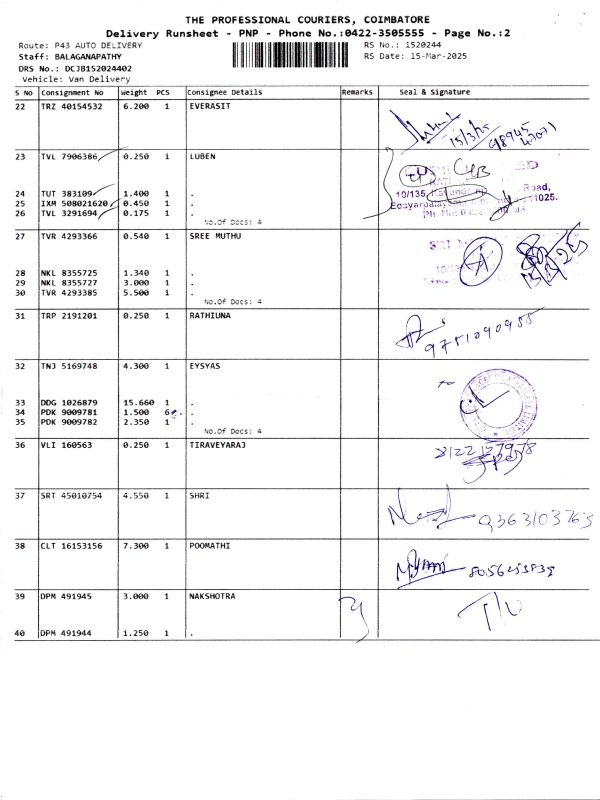 THE PROFESSIONAL COURIERS, COIMBATORE
Delivery Runsheet - PNP - Phone No.:0422-3505555 - Page No.:2
Route: P43 AUTO DELIVERY
RS No.: 1520244
Staff: BALAGANAPATHY
RS Date: 15-Mar-2025
DRS No.: DCJB152024402
Vehicle: Van Delivery
S No Consignment No Weight PCS Consignee Details Remarks Seal & Signature
22 TRZ 40154532 6.200 1 EVERASIT
15/3/25
98945
47071
23 TVL 7906386 0.250 1 LUBEN
24 TUT 383109 1.400 1 .
10/135, Road,
25 IXM 508021620 0.450 1 .
26 TVL 3291694 0.175 1 .
No.Of Docs: 4
27 TVR 4293366 0.540 1 SREE MUTHU
28 NKL 8355725 1.340 1 .
29 NKL 8355727 3.000 1 .
30 TVR 4293385 5.500 1 .
No.Of Docs: 4
31 TRP 2191201 0.250 1 RATHIUNA
9751090955
32 TNJ 5169748 4.300 1 EYSYAS
33 DDG 1026879 15.660 1 .
34 PDK 9009781 1.500 6 .
35 PDK 9009782 2.350 1 .
No.Of Docs: 4
36 VLI 160563 0.250 1 TIRAVEYARAJ
37 SRT 45010754 4.550 1 SHRI
9363103763
38 CLT 16153156 7.300 1 POOMATHI
39 DPM 491945 3.000 1 NAKSHOTRA
40 DPM 491944 1.250 1 .